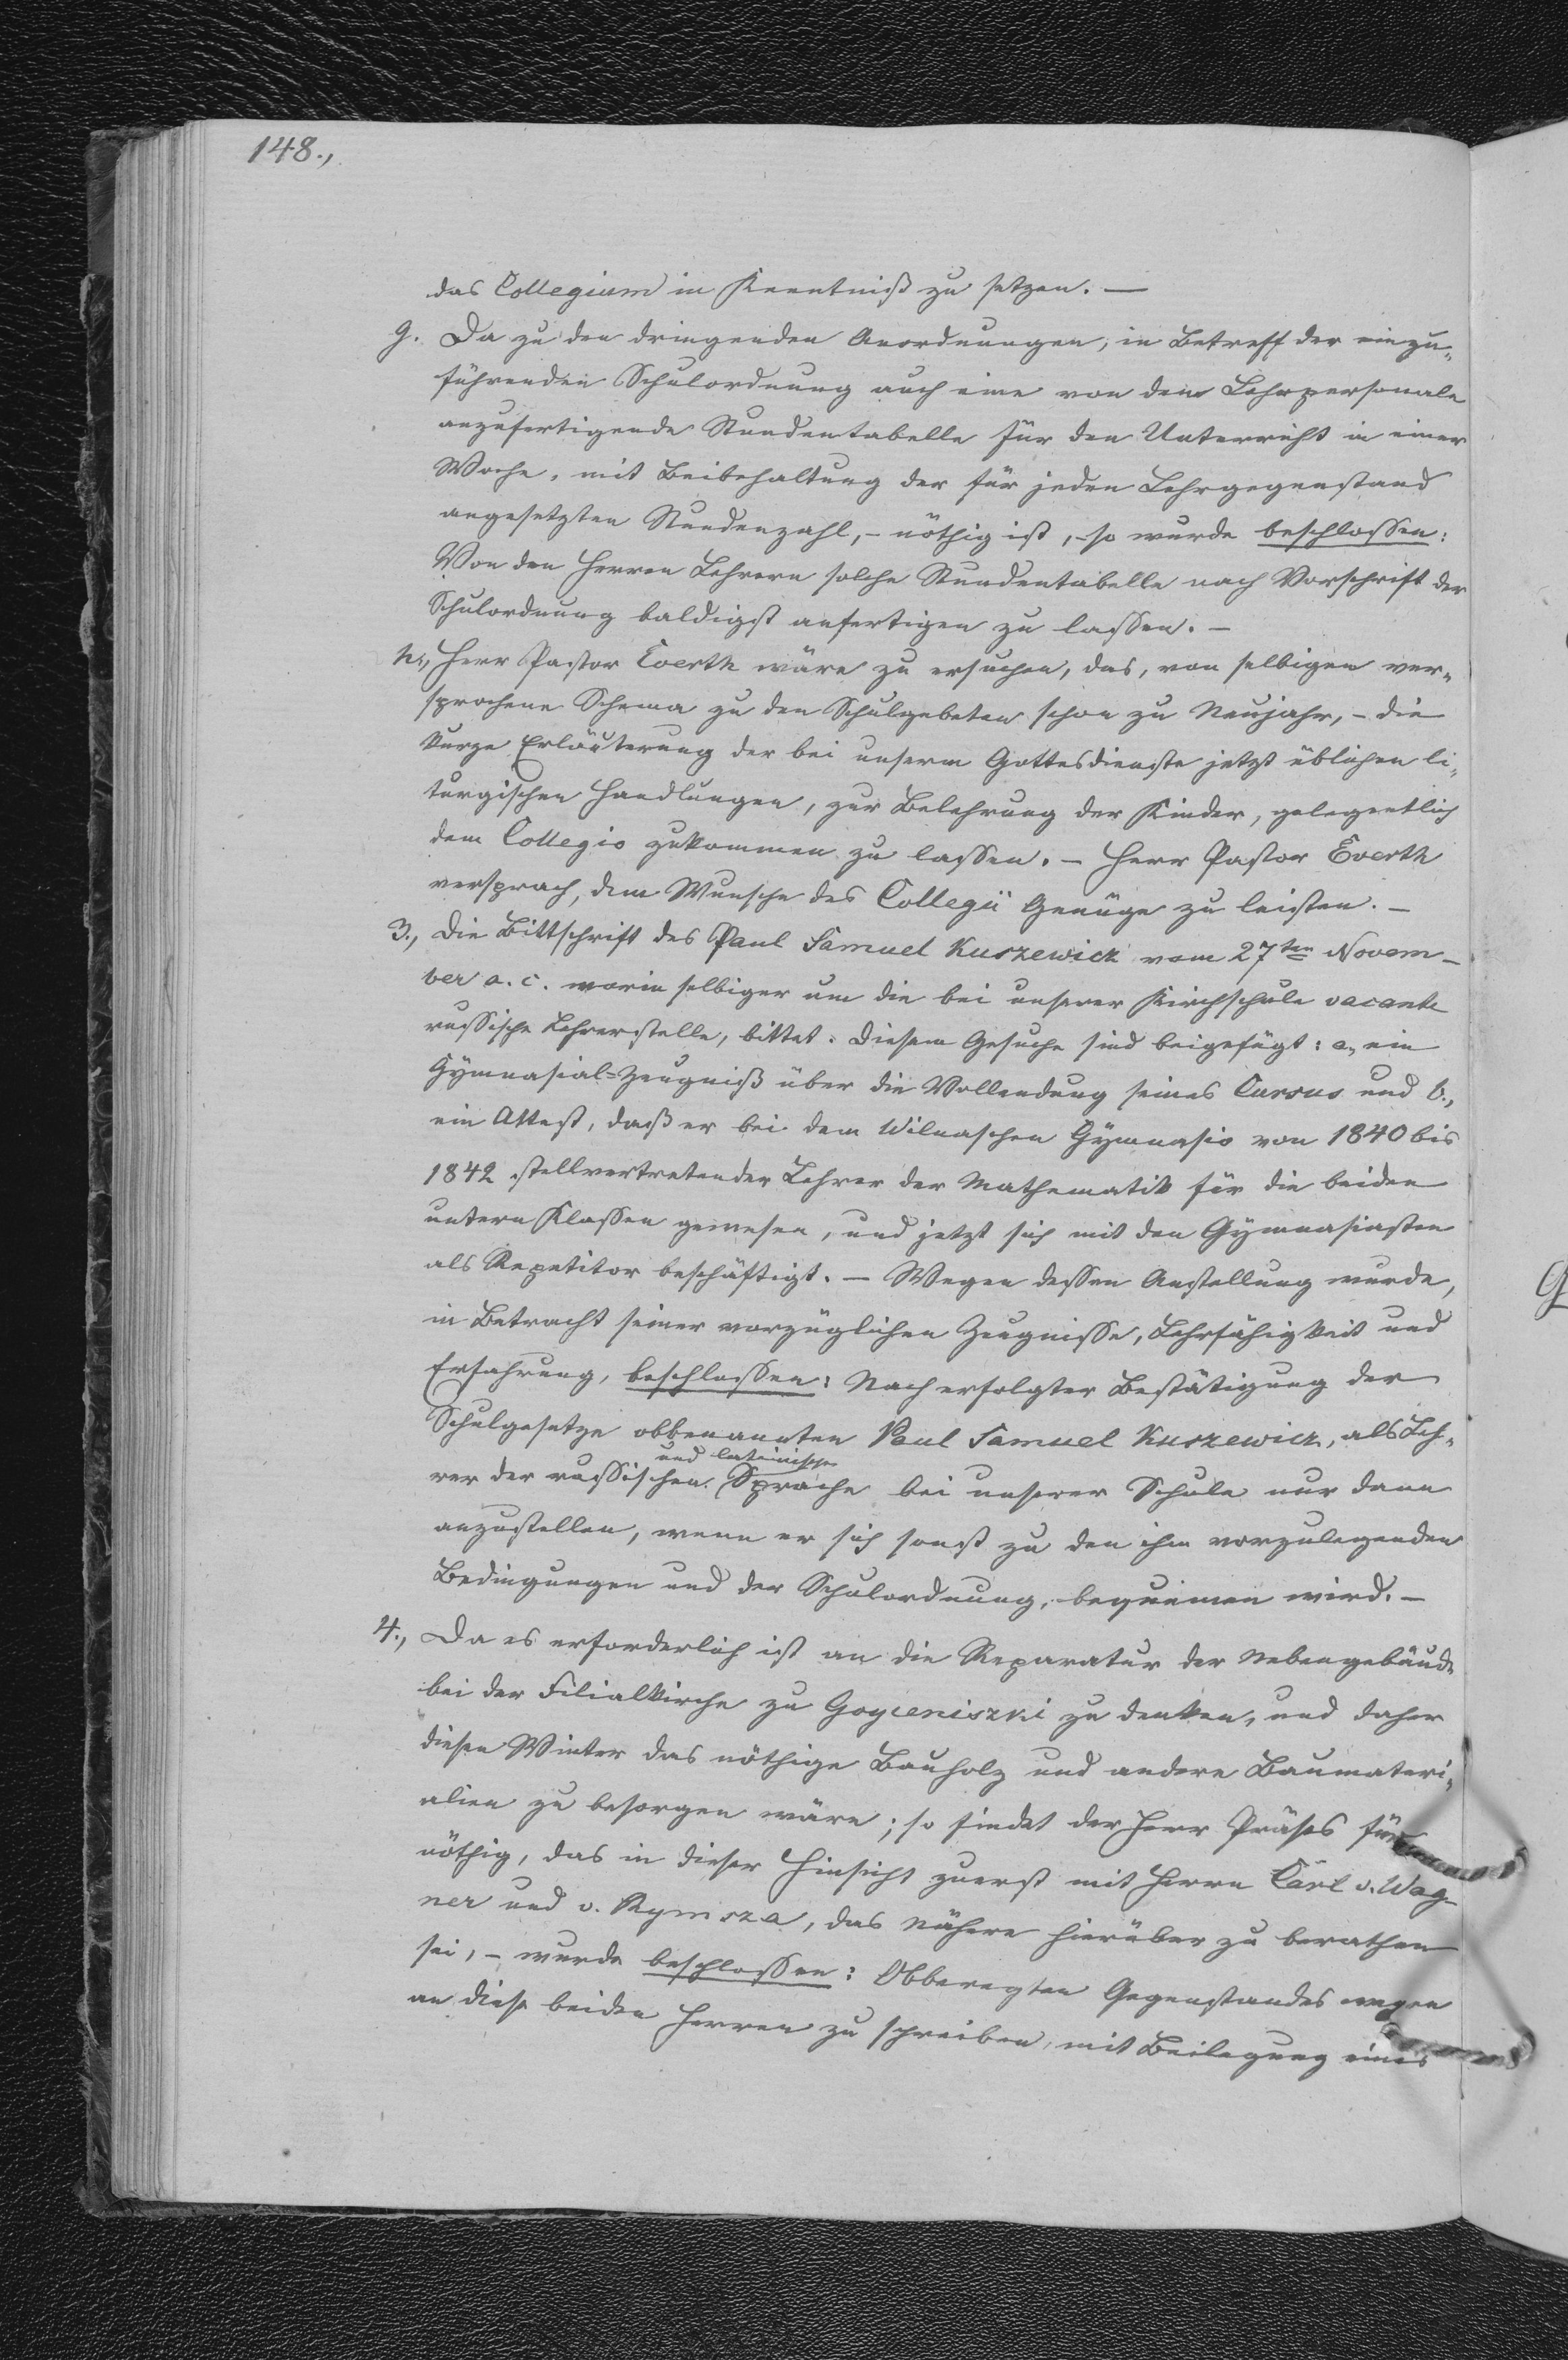 148.,
das Collegium in Kenntniß zu setzen. —
g. Da zu den dringenden Anordnungen, in Betreff der einzu„
führenden Schulordnung auch eine von dem Lehrpersonale
anzufertigende Stundentabelle für den Unterricht in einer
Woche, mit Beibehaltung der für jeden Lehrgegenstand
angesetzten Stundenzahl, – nöthig ist, – so wurde beschlossen:
Von den Herren Lehrern solche Stundentabelle nach Vorschrift der
Schulordnung baldigst anfertigen zu lassen. –
h., Herr Pastor Everth wäre zu ersuchen, das, von selbigen ver„
sprochene Schema zu den Schulgebeten schon zu Neujahr, – die
kurze Erläuterung der bei unserm Gottesdienste jetzt üblichen li„
turgischen Handlungen, zur Belehrung der Kinder, gelegentlich
dem Collegio zukommen zu lassen. – Herr Pastor Everth
versprach, dem Wunsche des Collegii Genüge zu leisten. –
3., Die Bittschrift des Paul Samuel Kuszewicz vom 27ten Novem–
ber a. c. worin selbiger um die bei unserer Kirchschule vacante
russische Lehrerstelle, bittet. Diesem Gesuche sind beigefügt: a., ein
Gymnasial-Zeugniß über die Vollendung seines Cursus und b.,
ein Attest, daß er bei dem Wilnaschen Gymnasio von 1840 bis
1842 stellvertretender Lehrer der Mathematik für die beiden
untern Klassen gewesen, und jetzt sich mit den Gymnasiasten
als Repetitor beschäftigt. – Wegen dessen Anstellung wurde,
in Betracht seiner vorzüglichen Zeugnisse, Lehrfähigkeit und
Erfahrung, beschlossen: Nach erfolgter Bestätigung der
Schulgesetze obbenannten Paul Samuel Kuszewicz, als Leh„
und lateinische
rer der russischen Sprache bei unserer Schule nur dann
anzustellen, wenn er sich sonst zu den ihm vorzulegenden
Bedingungen und der Schulordnung, bequemen wird. –
4., Da es erforderlich ist an die Reparatur der Nebengebäude
bei der Filialkirche zu Goyceniszki zu denken, und daher
diesen Winter das nöthige Bauholz und andere Baumateri„
alien zu besorgen wäre; so findet der Herr Präses für
nöthig, das in dieser Hinsicht zuerst mit Herrn Carl v. Wag–
ner und v. Rymsza, das Nähere hierüber zu berathen
sei, – wurde beschlossen: Obberegten Gegenstandes wegen
an diese beiden Herren zu schreiben, mit Beilegung eines